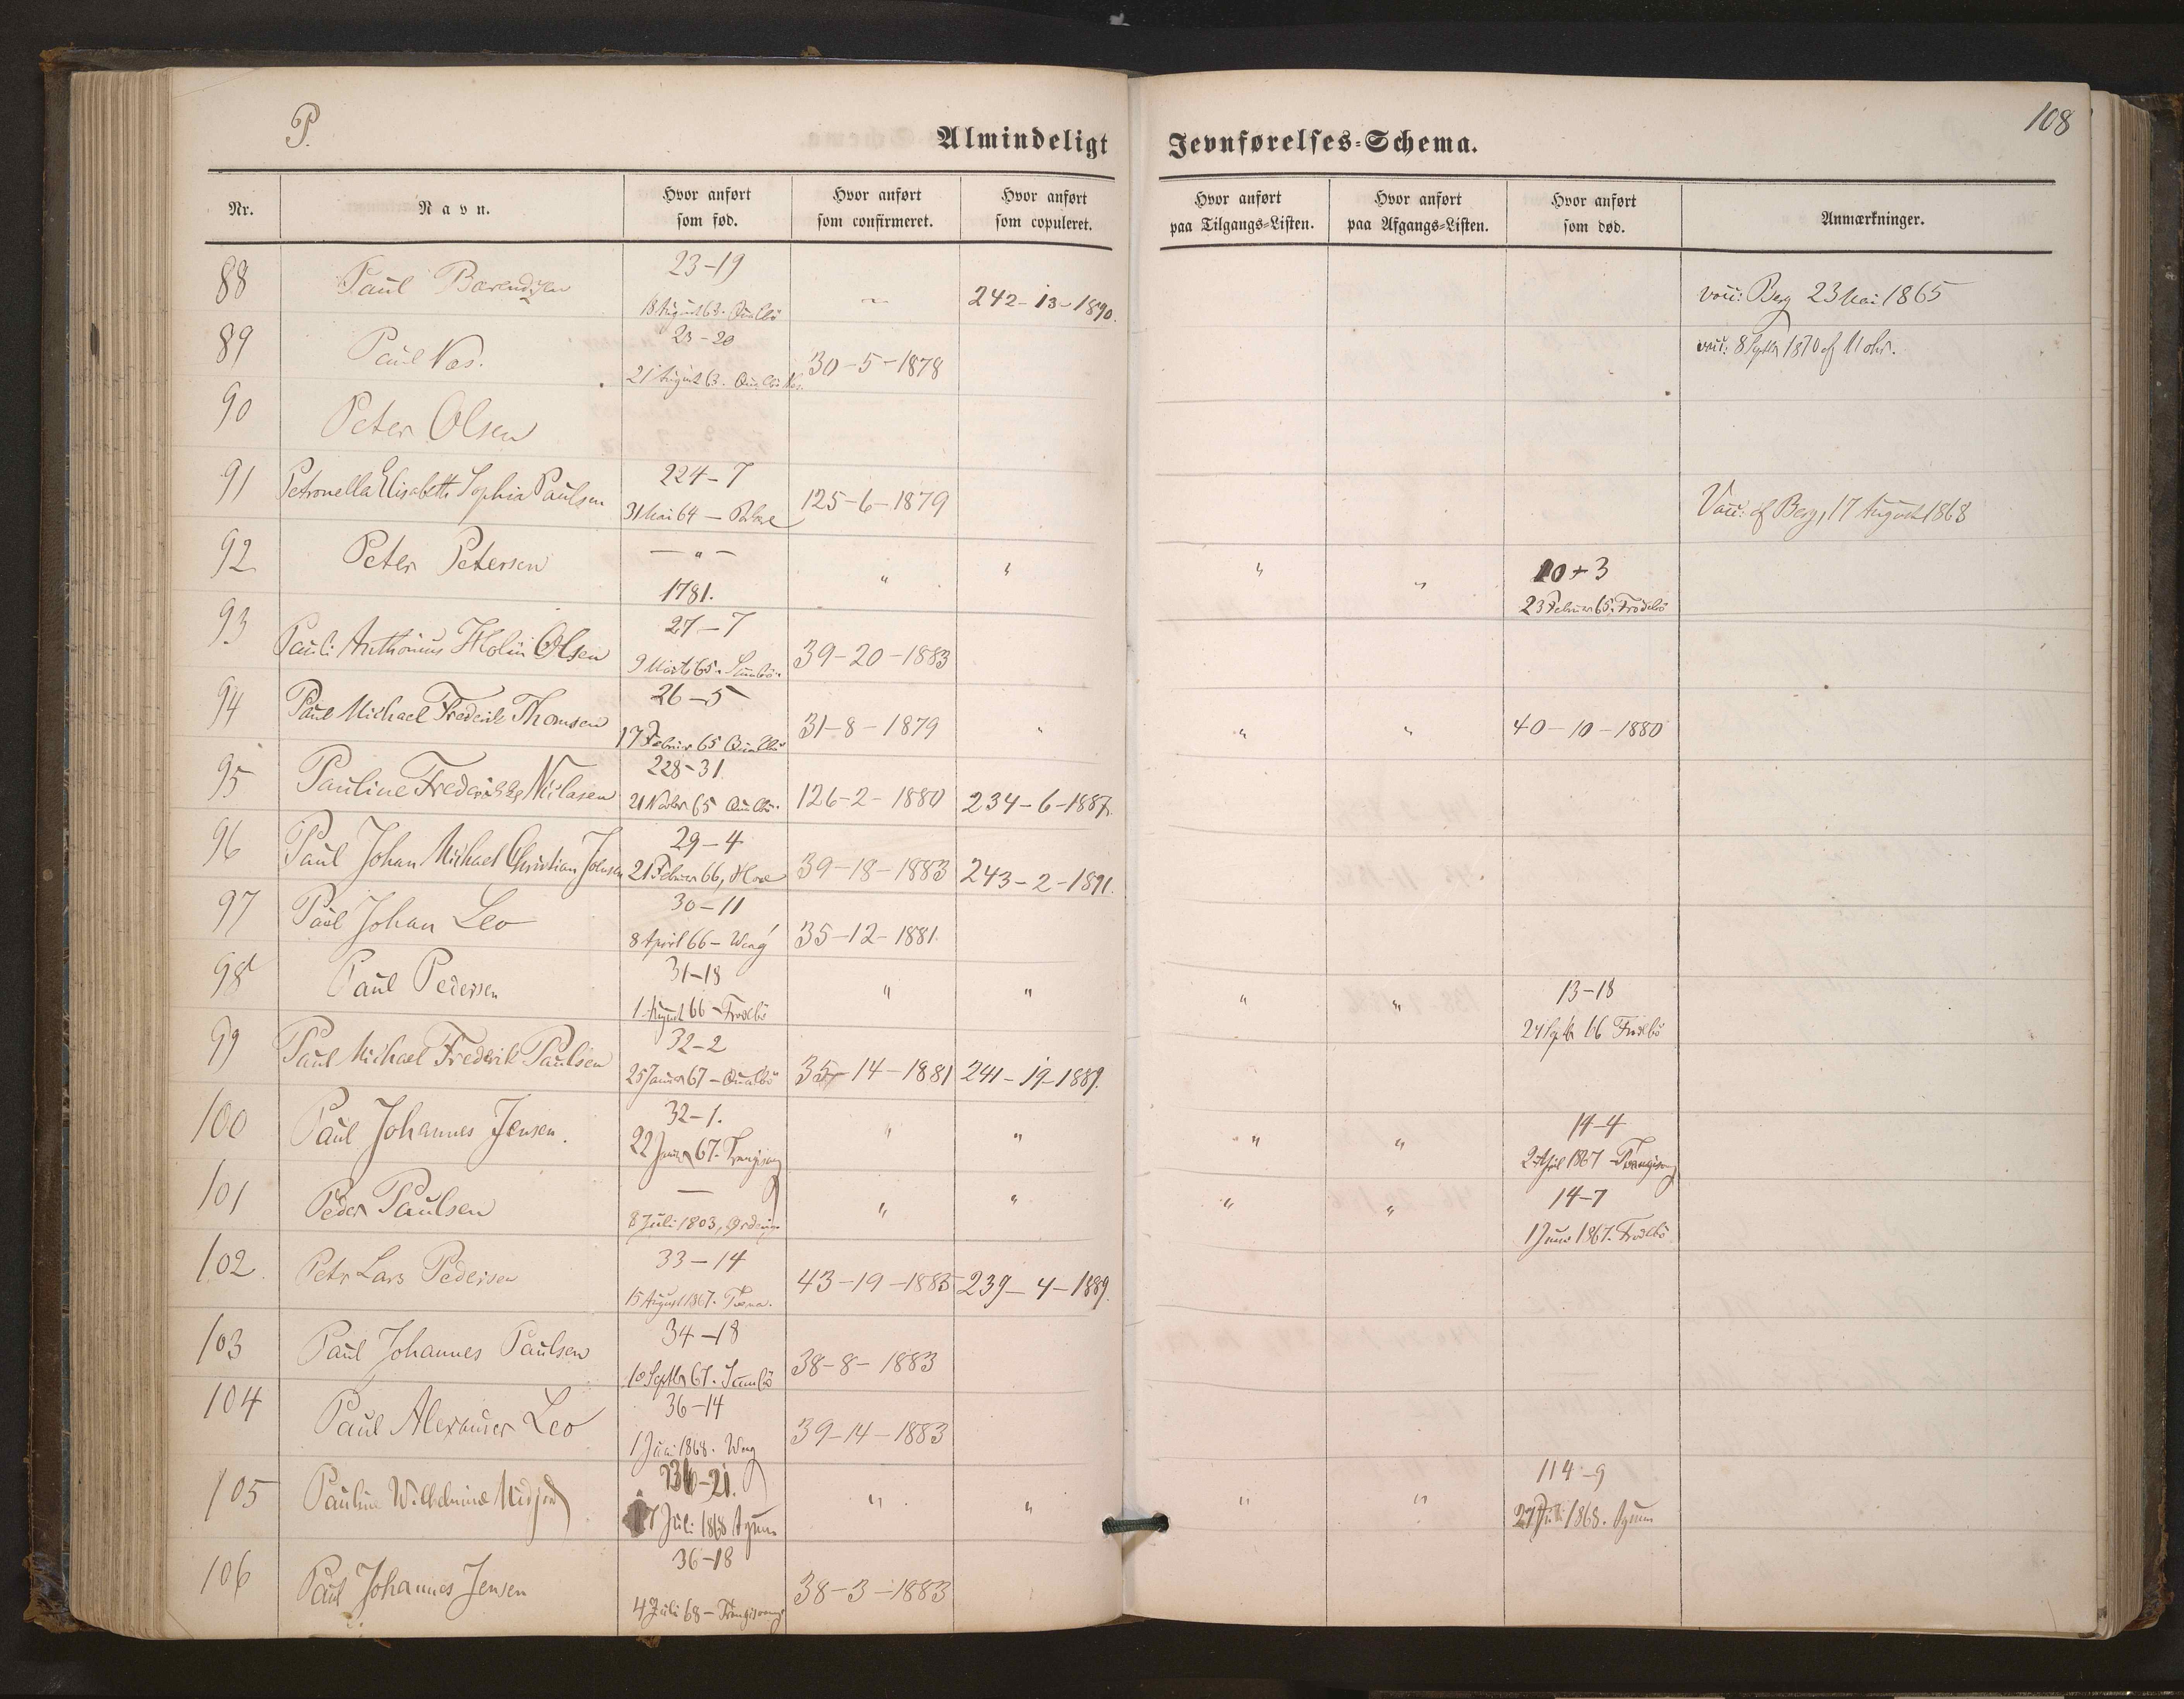 P.
108
Almindeligt Jevnførelses-Schema.
Nr. Navn. Hvor anført som fød. Hvor anført som confirmeret. Hvor anført som copuleret. Hvor anført paa Tilgangs-Listen. Hvor anført paa Afgangs-Listen. Hvor anført som død. Anmærkninger.
88 Paul Barendsen 23-19 242-13-1890. vacc: Berg 23 Mai 1865
18 August 63. Qualbö
89 Paul Næs. 23-20 30-5-1878 vacc: 8 Septbr 1870 af
21 August 63. Qualbö
90 Peter Olsen
91 Petronella Elisabeth Sophia Paulsen 224-7 125-6-1879 Vacc: af Berg, 17 August 1868
31 Mai 64 —
92 Peter Petersen — " — " " " " 10+3
1781. 23 Februar 65. Frodebö
93 Pauli Anthonius Holm Olsen 27-7 39-20-1883
9 Marts 65. Sumbö.
94 Paul Michael Frederik Thomsen 26-5 31-8-1879 " " " 40-10-1880
17 Februar 65 Qualbö
95 Pauline Fredrikke Niclasen 228-31 126-2-1880 234-6-1887.
21 Novbr 65 Qualbö.
96 Paul Johan Michael Christian Joensen 29-4 39-18-1883 243-2-1891.
21 Februar 66, Hove
97 Paul Johan Leo 30-11 35-12-1881
8 April 66 - Waag
98 Paul Pedersen 31-18 " " " " 13-18
1 August 66 - Frodebö 24 Septbr 66 Frodebö
99 Paul Michael Frederik Paulsen 32-2 35-14-1881 241-19-1889.
25 Januar 67 - Qualbö
100 Paul Johannes Jensen. 32-1. " " " " 14-4
22 Januar 67. Trangisvaag 2 April 1867 - Trangisvaag
101 Peder Paulsen — " " " " 14-7
8 Juli 1803, 1 Juni 1867. Frodebö
102 Petr Lars Pedersen 33-14 43-19-1885 239-4-1889.
15 August 1867.
103 Paul Johannes Paulsen 34-18 38-8-1883
10 Septbr 67. Sumbö
104 Paul Alexander Leo 36-14 39-14-1883
1 Juni 1868. Waag
105 Pauline Wilhelmine Midjord 236-21. " " " " 114-9
17 Juli 1868 27 Juli 1868.
106 Paul Johannes Jensen 36-18 38-3-1883
4 Juli 68 - Trangisvaag